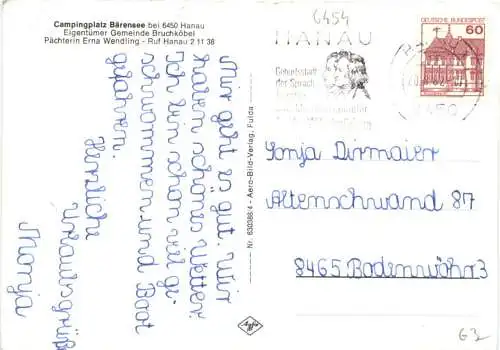 Campingplatz Bärensee bei 6450 Hanau
Eigentümer Gemeinde Bruchköbel
Pächterin Erna Wendling - Ruf Hanau 2 11 38
6454
HANAU
Geburtsstadt
der
DEUTSCHE BUNDESPOST
60
Mir geht es gut. Wir
haben schönes Wetter.
Ich bin schon viel ge
schwommen und Boot
gefahren.
Herzliche
Urlaubsgrüße
Thonja
Nr. 6303864 - Aero-Bild-Verlag, Fulda
Sonja Dirmaier
Altenschwand 87
8465 Bodenwöhr 3
Agfa
G3